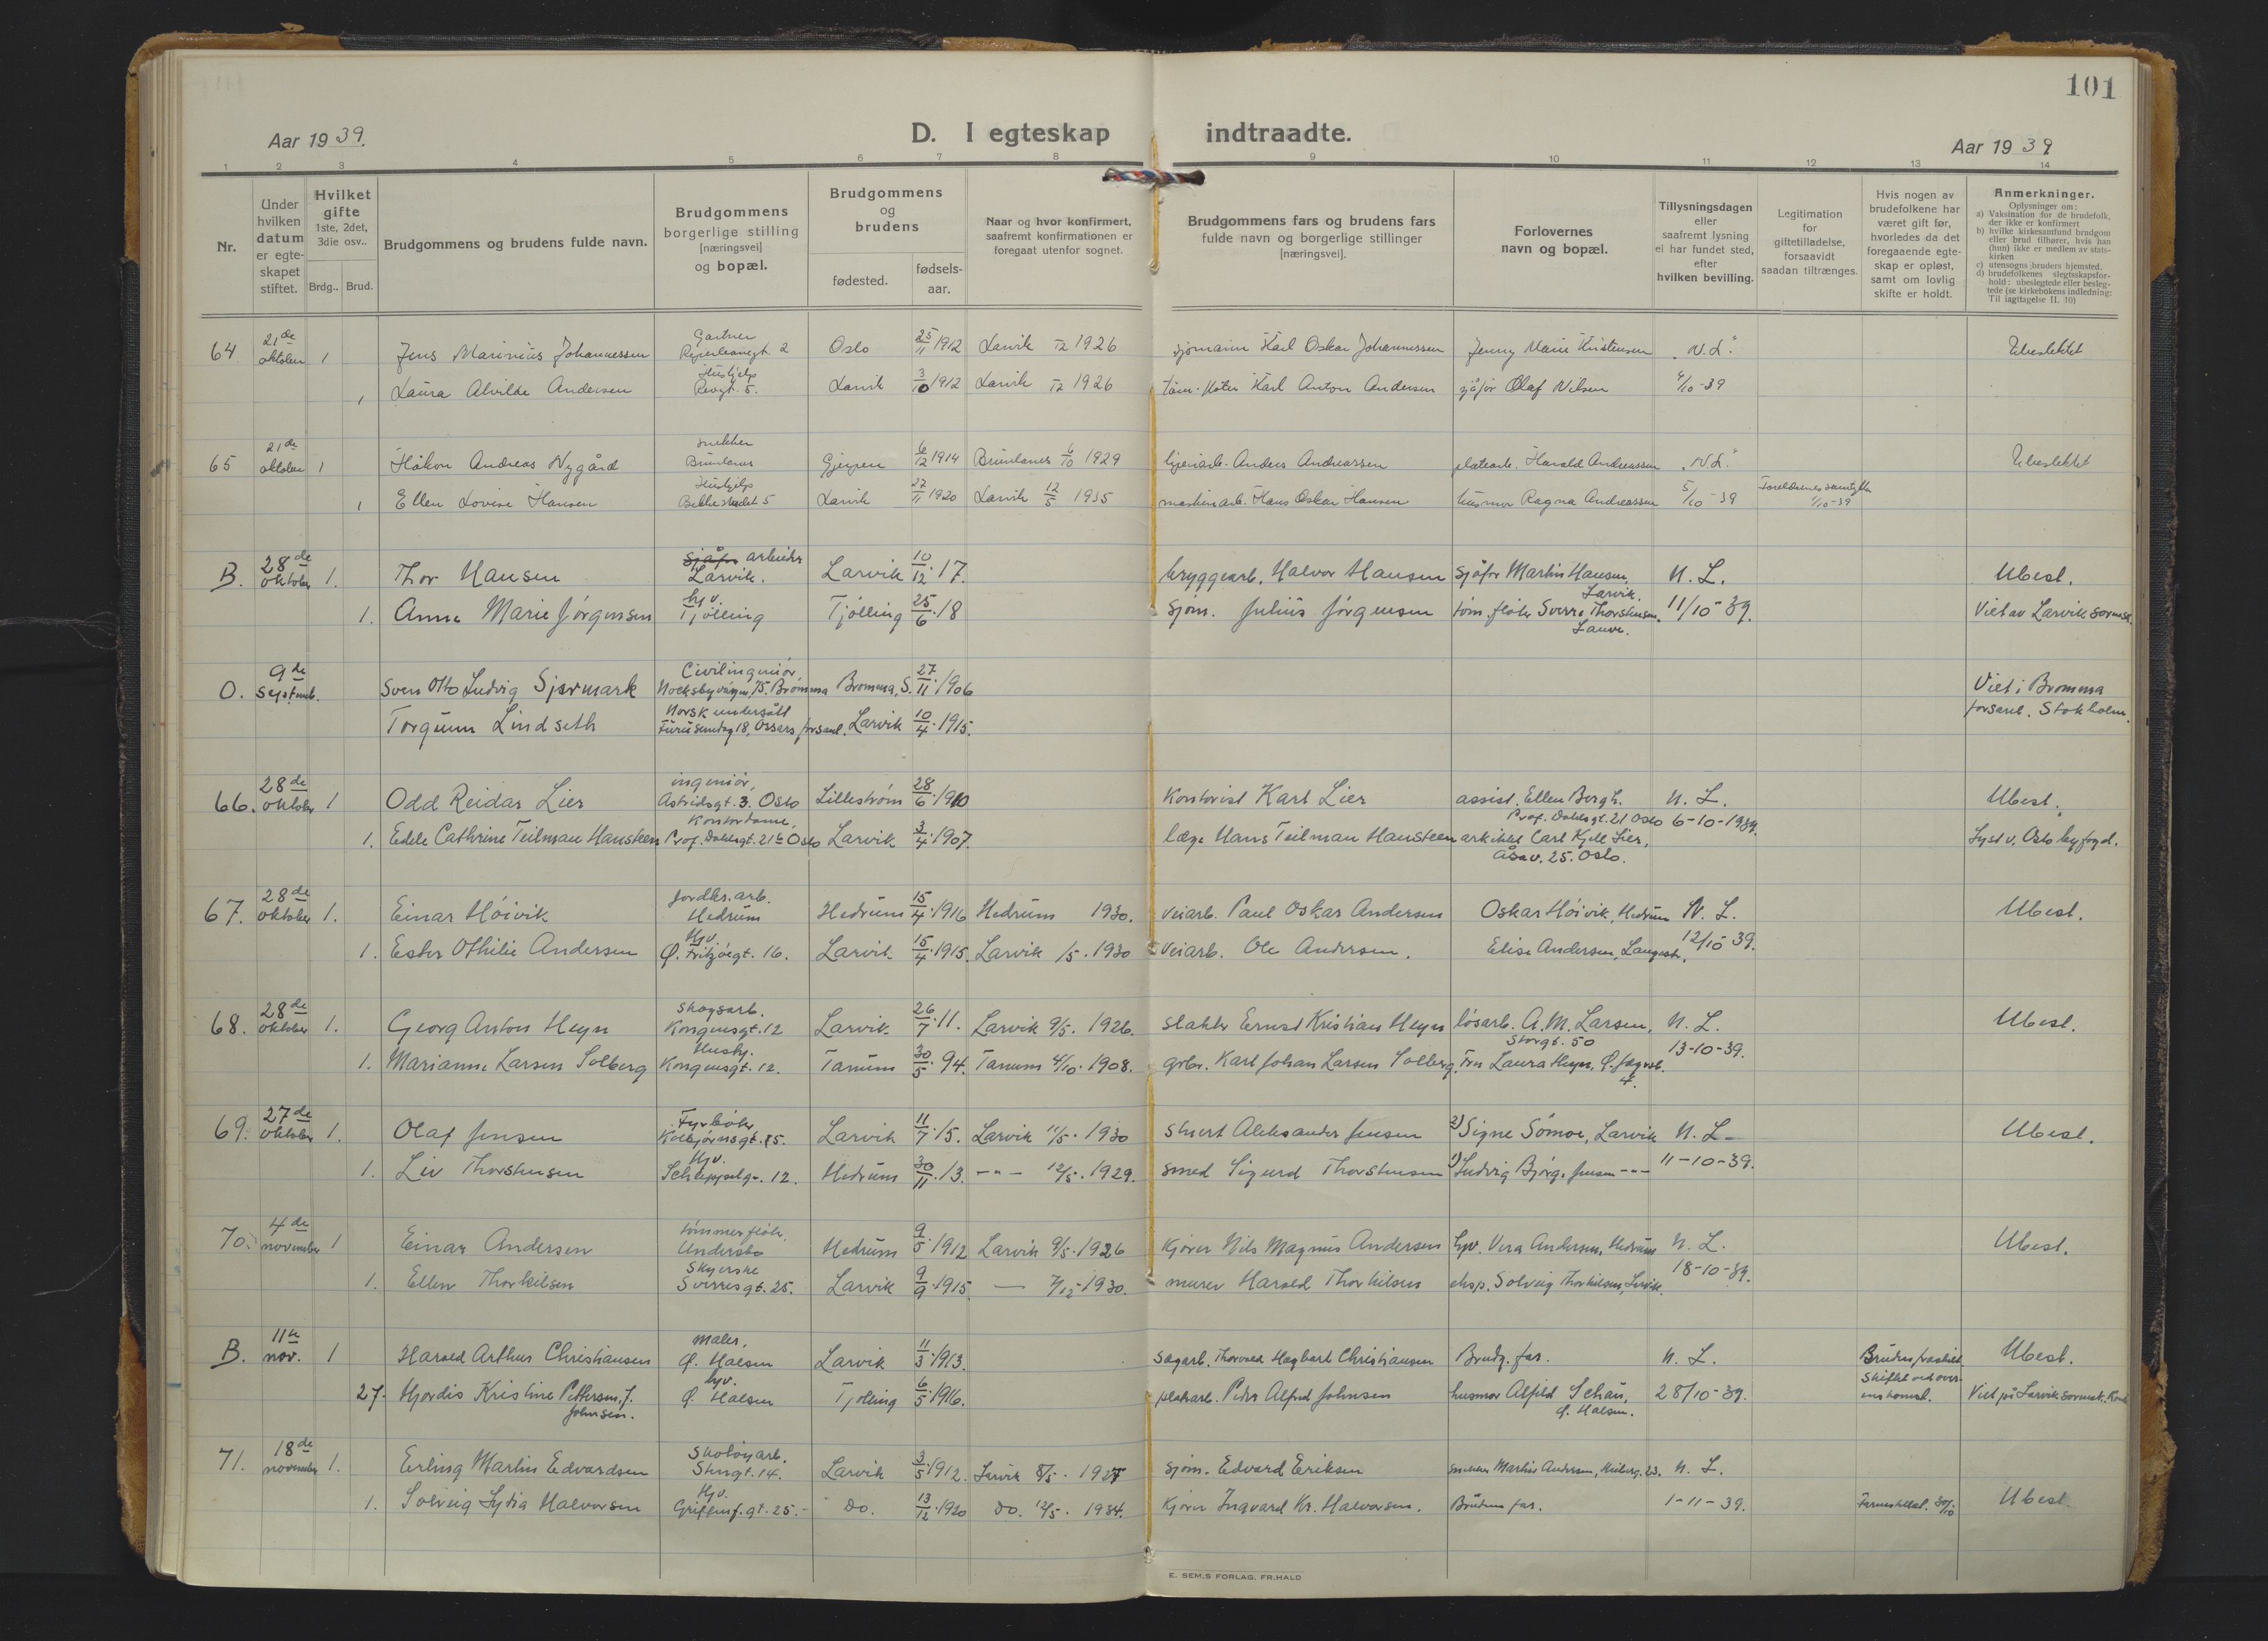 101
Aar 1939.
D. I egteskap indtraadte.
Aar 1939
1 2 3 4 5 6 7 8 9 10 11 12 13 14
Nr.
Under hvilken datum er egte-skapet stiftet.
Hvilket gifte 1ste, 2det, 3die osv..
Brdg.. Brud.
Brudgommens og brudens fulde navn.
Brudgommens borgerlige stilling [næringsvei] og bopæl.
Brudgommens og brudens
fødested.
fødsels-aar.
Naar og hvor konfirmert, saafremt konfirmationen er foregaat utenfor sognet.
Brudgommens fars og brudens fars fulde navn og borgerlige stillinger [næringsvei].
Forlovernes navn og bopæl.
Tillysningsdagen eller saafremt lysning ei har fundet sted, efter hvilken bevilling.
Legitimation for giftetilladelse, forsaavidt saadan tiltrænges.
Hvis nogen av brudefolkene har været gift før, hvorledes da det foregaaende egte-skap er opløst, samt om lovlig skifte er holdt.
Anmerkninger.
Oplysninger om:
a) Vaksination for de brudefolk, der ikke er konfirmert
b) hvilke kirkesamfund brudgom eller brud tilhører, hvis han (hun) ikke er medlem av stats-kirken
c) utensogns bruders hjemsted.
d) brudefolkenes slegtsskapsfor-hold: ubeslegtede eller besleg-tede (se kirkebokens indledning: Til iagttagelse II. 10)
64 21de oktober 1 Jens Marinius Johannessen Gartner 2 Oslo 25/11 1912 Larvik 1926 sjømann Karl Oskar Johannessen Jenny Marie Kristensen "N.L." Ubeslektet
1 Laura Alvilde Andersen Hushjelp Revgt. 5. Larvik 3/10 1912 Larvik 1926 Karl Anton Andersen sjåfør Olaf Nilsen 4/10-39
65 21de oktober 1 Håkon Andreas Nygård snekker Brunlanes Gjerpen 6/12 1914 Brunlanes 6/10 1929 Anders Andreassen platearb. Harald Andreassen "N.L." Ubeslektet
1 Ellen Lovise Hansen Hushjelp 5 Larvik 27/11 1920 Larvik 12/5 1935 maskinarb. Hans Oskar Hansen husmor Ragna Andreassen 5/10-39 Foreldrenes samtykke 1/10-39
B. 28de oktober 1. Thor Hansen sjåfør arbeider Larvik. Larvik 10/12.17. bryggearb. Halvor Hansen sjåfør Martin Hansen, Larvik. N. L. Ubesl.
1. Anna Marie Jörgensen hjv. Tjölling Tjölling 25/6.18 sjøm. Julius Jörgensen tøm.fløter Sverre Thorstensen, Lauve. 11/10-39. Viet av Larvik sorensk.
O. 9de septemb. Sven Otto Ludvig Sjermark Civilingeniør, Nockebyvägen, 75. Bromma Bromma, S. 27/11.1906 Viet i Bromma forsaml. Stokholm.
Torgunn Lindseth Norsk undersått Larvik 10/4.1915.
66. 28de oktober 1 Odd Reidar Lier ingeniør, Astridsgt. 3. Oslo Lillestrøm 28/6.1910 Kontorist Karl Lier assist. Ellen Bergh. Prof. Dahlsgt. 21 Oslo N. L. Ubesl.
1. Edele Cathrine Teilman Hansteen Kontordame, Prof. Dahlsgt. 21 b Oslo Larvik 3/4.1907. læge Hans Teilman Hansteen arkitekt Carl Kjell Lier, Åsav. 25. Oslo. 6-10-1939. Lyst v. Oslo byfogd.
67. 28de oktober 1. Einar Höivik jordbr. arb. Hedrum Hedrum 15/4.1916 Hedrum 1930. veiarb. Paul Oskar Andersen Oskar Höivik, Hedrum N. L. Ubesl.
1. Ester Othilie Andersen Hjv. Ø. Fritzöegt. 16. Larvik 15/4.1915. Larvik /5.1930 veiarb. Ole Andersen. Elise Andersen, Langestr. 12/10 39.
68. 28de oktober 1. Georg Anton Heyn Skogsarb. Kongensgt. 12 Larvik 26/7.11. Larvik 9/5. 1926. slakter Ernst Kristian Heyn løsarb. A. M. Larsen, Storgt. 50 N. L. Ubesl.
1. Marianne Larsen Solberg Hushj. Kongensgt. 12. Tanum 30/5.94. Tanum 4/10.1908. grbr. Karl Johan Larsen Solberg Fru Laura Heyn, 4. 13-10-39.
69. 27de oktober 1. Olaf Jensen Fyrbøter Larvik 11/7.15. Larvik 11/5.1930 stuert Aleksander Jensen 2) Signe Sömoe, Larvik N. L. Ubesl.
1. Liv Thorstensen Hjv. 12. Hedrum 30/11.13. -"- 12/5.1929. smed Sigurd Thorstensen 1) Ludvig Bjørg. Jensen -"- 11-10-39.
70. 4de november 1 Einar Andersen tømmerfløter, Undersbo Hedrum 9/5.1912 Larvik 9/5.1926 kjører Nils Magnus Andersen hjv. Vera Andersen, Hedrum N. L. Ubesl.
1. Ellen Thorkilsen Syerske Sverresgt. 25. Larvik 9/9.1915. — 7/12-1930. murer Harald Thorkilsen eksp. Solveig Thorkilsen, Larvik. 18-10-39.
B. 11te nov. 1 Harald Arthur Christiansen maler, Ø. Halsen Larvik 11/3.1913. sagarb. Thorvald Hagbart Christiansen Brudg. far. N. L. Ubesl.
2 Hjördis Kristine Pettersen, f. Johnsen. hjv. Ø. Halsen Tjølling 6/5.1916. platearb. Peder Alfred Johnsen husmor Alfild Schau, Ø. Halsen. 28/10-39. Bruden fraskilt Skiftet ved overenskomst. Viet på Larvik sorensk. Kont
71. 18de november 1. Erling Martin Edvardsen Skotøyarb. 14. Larvik 3/5.1912. Larvik 8/5. 1927 sjøm. Edvard Eriksen snekker Martin Andersen, 23. N. L.
1. Solveig Lydia Halvorsen Hjv. Griffenf.gt. 25.- do. 13/12.1920 do. 12/5. 1934. kjører Ingvard Kr. Halvorsen. Brudens far. 1-11-39. 30/10 Ubesl.
E. SEM.S FORLAG, FR.HALD